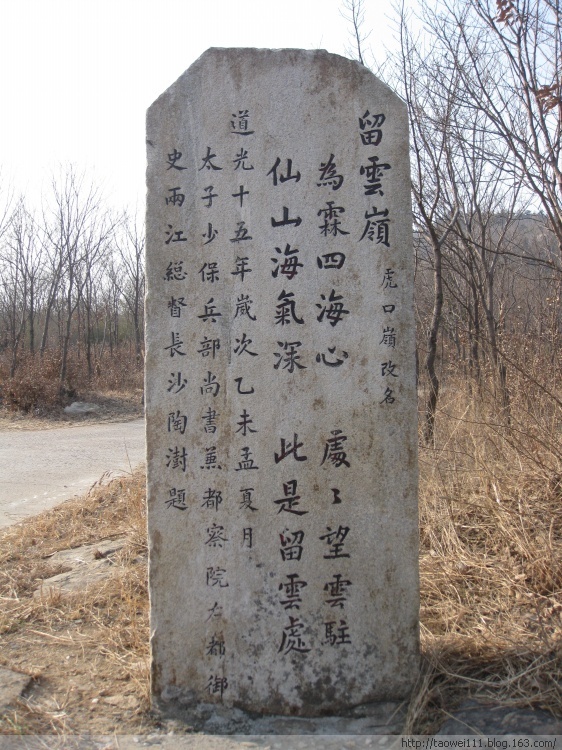 留雲嶺 虎口嶺改名
為霖四海心 處〻望雲駐
仙山海氣深 此是留雲處
道光十五年嵗次乙未孟夏月
太子少保兵部尚書兼都察院右都御
史兩江總督長沙陶澍題
http://taowei111.blog.163.com/